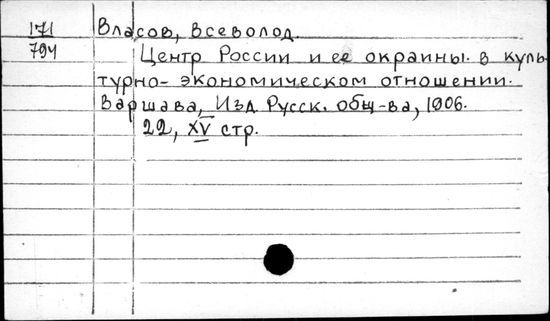 171
794
Власов, Всеволод.
Центр России и ее окраины в куль-
турно-экономическом отношении.
Варшава, Изд. Русск. общ-ва, 1906.
22, XV стр.